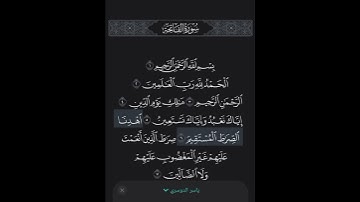 سُورَةُ الفَاتِحَةِ
بِسْمِ ٱللَّهِ ٱلرَّحْمَٰنِ ٱلرَّحِيمِ ١
ٱلْحَمْدُ لِلَّهِ رَبِّ ٱلْعَٰلَمِينَ ٢
ٱلرَّحْمَٰنِ ٱلرَّحِيمِ ٣ مَٰلِكِ يَوْمِ ٱلدِّينِ ٤
إِيَّاكَ نَعْبُدُ وَإِيَّاكَ نَسْتَعِينُ ٥ ٱهْدِنَا
ٱلصِّرَٰطَ ٱلْمُسْتَقِيمَ ٦ صِرَٰطَ ٱلَّذِينَ أَنْعَمْتَ
عَلَيْهِمْ غَيْرِ ٱلْمَغْضُوبِ عَلَيْهِمْ
وَلَا ٱلضَّآلِّينَ ٧
ياسر الدوسري